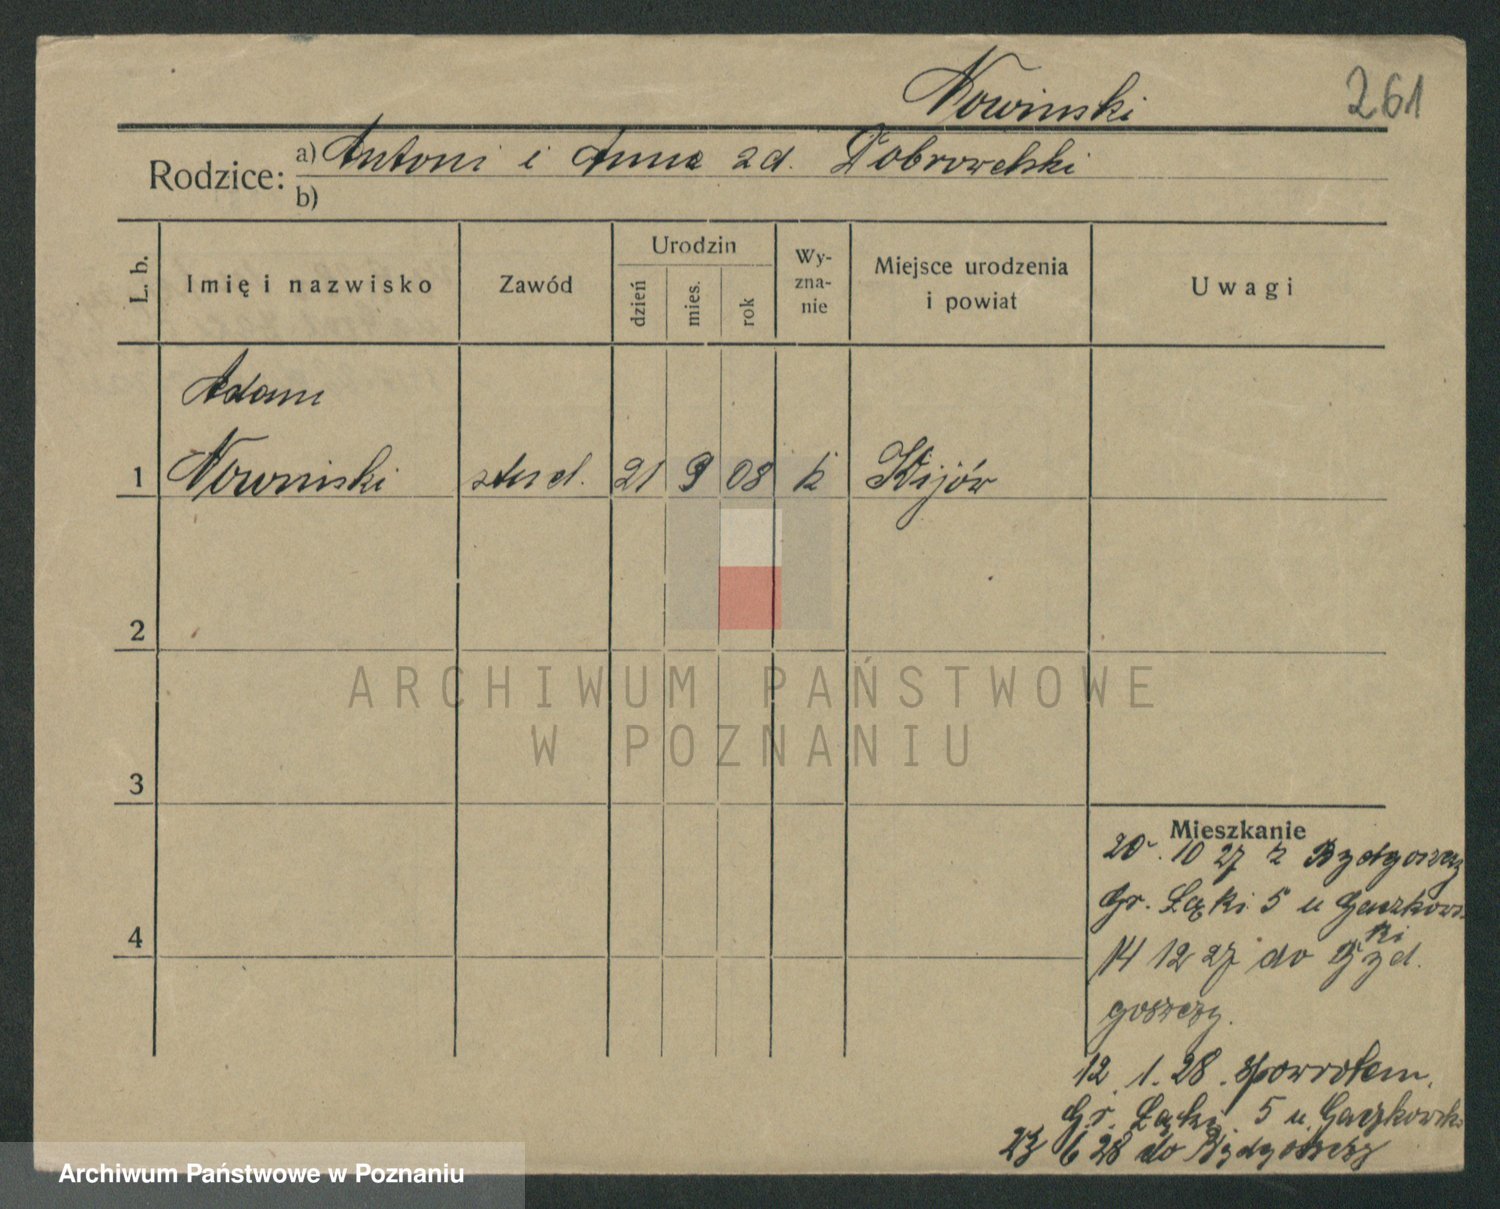 Nowinski
261
Rodzice: a) Antoni i Anna zd. Dobrowolski
b)
L. b. Imię i nazwisko Zawód Urodzin dzień mies. rok Wy-zna-nie Miejsce urodzenia i powiat Uwagi
Adam
1 Nowinski stud. 21 9 08 k Kijów
2
ARCHIWUM PAŃSTWOWE
W POZNANIU
3
Mieszkanie
20. 10 27 z Bydgoszczy
Gr. Łąki 5 u Gaczkows
ki
4
14 12 27 do Byd.
goszczy.
12. 1. 28. spowrotem.
Gr. Łąki. 5 u. Gaczkowsk
23 6 28 do Bydgoszczy
Archiwum Państwowe w Poznaniu